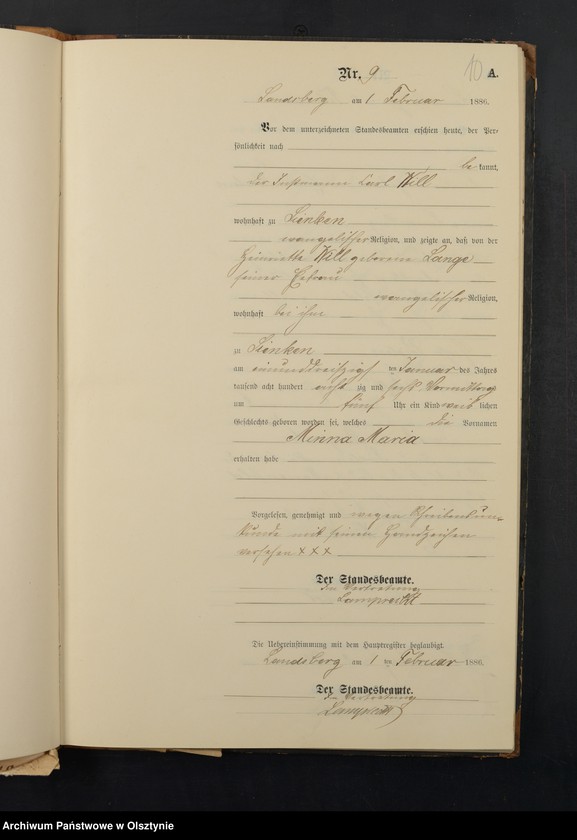 Nr. 9. 10 A.
Landsberg am 1 Februar 1886.
Vor dem unterzeichneten Standesbeamten erschien heute, der Per-
sönlichkeit nach
be kannt,
der Instmann Carl Will
wohnhaft zu Sienken
evangelischer Religion, und zeigte an, daß von der
Henriette Will geborene Lange
seiner Ehefrau
evangelischer Religion,
wohnhaft bei ihm
zu Sienken
am einunddreißigsten Januar des Jahres
tausend acht hundert acht zig und sechs Vormittags
um fünf Uhr ein Kind weib lichen
Geschlechts geboren worden sei, welches die Vornamen
Minna Maria
erhalten habe
Vorgelesen, genehmigt und wegen Schreibensun-
kunde mit seinen Handzeichen
versehen x x x
Der Standesbeamte.
In Vertretung
Lamprecht
Die Uebereinstimmung mit dem Hauptregister beglaubigt.
Landsberg am 1 ten Februar 1886.
Der Standesbeamte.
In Vertretung
Lamprecht
Archiwum Państwowe w Olsztynie